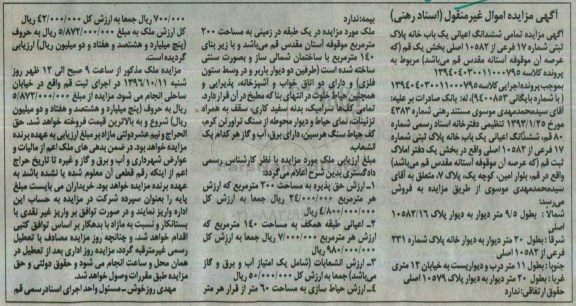 آگهی مزایده اموال غیرمنقول (اسناد رهنی)
آگهی مزایده تمامی ششدانگ اعیانی یک باب خانه پلاک
ثبتی شماره ۱۷ فرعی از ۱۰۵۸۲ اصلی بخش یک قم (که
عرصه آن موقوفه آستانه مقدس قم می‌باشد) مربوط به
پرونده کلاسه ۱۳۹۴۰۴۰۳۰۰۱۱۰۰۰۷۹۵
بموجب پرونده اجرایی کلاسه ۱۳۹۴۰۴۰۳۰۰۱۱۰۰۰۷۹۵
(با شماره بایگانی ۹۴۰۰۸۵۳)، له: بانک صادرات بر علیه:
آقای سیدمحمدمهدی موسوی مستند رهنی شماره ۴۳۸۳
مورخ ۱۳۹۳/۱/۲۵ تنظیمی دفترخانه اسناد رسمی شماره
۸۰ قم، ششدانگ اعیانی یک باب خانه پلاک ثبتی شماره
۱۷ فرعی از ۱۰۵۸۲ اصلی واقع در بخش یک دفتر املاک
ثبت قم (که عرصه آن موقوفه آستانه مقدس قم می‌باشد)
واقع در قم، بلوار امین، کوچه یک، پلاک ۷، متعلق به آقای
سیدمحمدمهدی موسوی از طریق مزایده به فروش
می‌رسد:
شمالا: بطول ۹/۵ متر دیوار به دیوار پلاک ۱۰۵۸۲/۱۶
اصلی
شرقا: بطول ۲۰ متر دیوار به دیوار خانه پلاک شماره ۲۳۱
فرعی از ۱۰۵۸۲ اصلی
جنوبا: بطول ۱۱ متر درب و دیواریست به خیابان ۱۲ متری
غربا: بطول ۲۰ متر دیوار به دیوار پلاک ۱۰۵۷۹ اصلی
حقوق ارتفاقی: ندارد
بیمه: ندارد
ملک مورد مزایده در یک طبقه در زمینی به مساحت ۲۰۰
مترمربع موقوفه آستان مقدس قم می‌باشد و با زیر بنای
۱۴۰ مترمربع با ساختمان شمالی ساز و بصورت سنتی
ساخته شده است (طرفین دو دیوار باربر و در وسط ستون
فلزی) و دارای دو اتاق خواب و آشپزخانه، پذیرایی و
همچنین حیاط خلوت در انتهای بنا که مطبخ در آن قرار دارد.
تمامی کف‌ها سرامیک، بدنه سفید کاری، سقف به همراه
تزئینات، نمای حیاط و دیوار محوطه از سنگ تراورتن کرم،
کف حیاط سنگ هرسین، دارای برق، آب و گاز هر کدام یک
انشعاب
مبلغ ارزیابی ملک مورد مزایده با نظر کارشناس رسمی
دادگستری بدین شرح اعلام می‌گردد:
۱- ارزش حق پذیره به مساحت ۲۰۰ مترمربع که ارزش
هر مترمربع ۲۴/۰۰۰/۰۰۰ ریال جمعا به ارزش کل
۴/۸۰۰/۰۰۰/۰۰۰ ریال
۲- اعیانی طبقه همکف به مساحت ۱۴۰ مترمربع که
ارزش هر مترمربع ۷/۰۰۰/۰۰۰ ریال جمعا به ارزش کل
۹۸۰/۰۰۰/۰۰۰ ریال
۳- ارزش انشعابات (شامل یک امتیاز آب و برق و گاز
می‌باشد) جمعا به ارزش کل ۵۰/۰۰۰/۰۰۰ ریال
۴- ارزش حیاط سازی به مساحت ۶۰ متر از قرار هر متر
۷۰۰/۰۰۰ ریال جمعا به ارزش کل ۴۲/۰۰۰/۰۰۰ ریال
کل ارزش ملک به مبلغ ۵/۸۷۲/۰۰۰/۰۰۰ ریال به حروف
(پنج میلیارد و هشتصد و هفتاد و دو میلیون ریال) ارزیابی
گردیده است.
مزایده ملک مذکور از ساعت ۹ صبح الی ۱۲ ظهر روز
شنبه ۱۳۹۶/۱۰/۱۱ در اجرای ثبت قم واقع در خیابان
ساحلی انجام می شود. مزایده از مبلغ ۵/۸۷۲/۰۰۰/۰۰۰
ریال به حروف (پنج میلیارد و هشتصد و هفتاد و دو میلیون
ریال) شروع و به بالاترین قیمت فروخته خواهد شد. حق
الحراج و نیم عشر دولتی مازاد بر مبلغ ارزیابی به عهده برنده
مزایده خواهد بود. در ضمن بدهی های ملک اعم از مالیات و
عوارض شهرداری و آب و برق و گاز و غیره تا تاریخ حراج
اعم از اینکه رقم قطعی آن معلوم شده یا نشده باشد به
عهده برنده مزایده خواهد بود. خریداران می بایست مبلغ
پایه را بعنوان سپرده شرکت در مزایده به حساب این
اداره واریز نمایند و در صورت توافق بر واریز غیر نقدی با
بستانکار و نسبت به مازاد با بدهکار بر اساس توافق کتبی
اقدام خواهد شد. و چنانچه روز مزایده مصادف با تعطیل
رسمی غیر مترقبه گردد، مزایده روز اداری بعد از تعطیل در
همان محل و ساعت انجام می شود و حقوق دولتی و حق
مزایده طبق مقررات وصول خواهد شد.
مهدی روزخوش - مسئول واحد اجرای اسناد رسمی قم